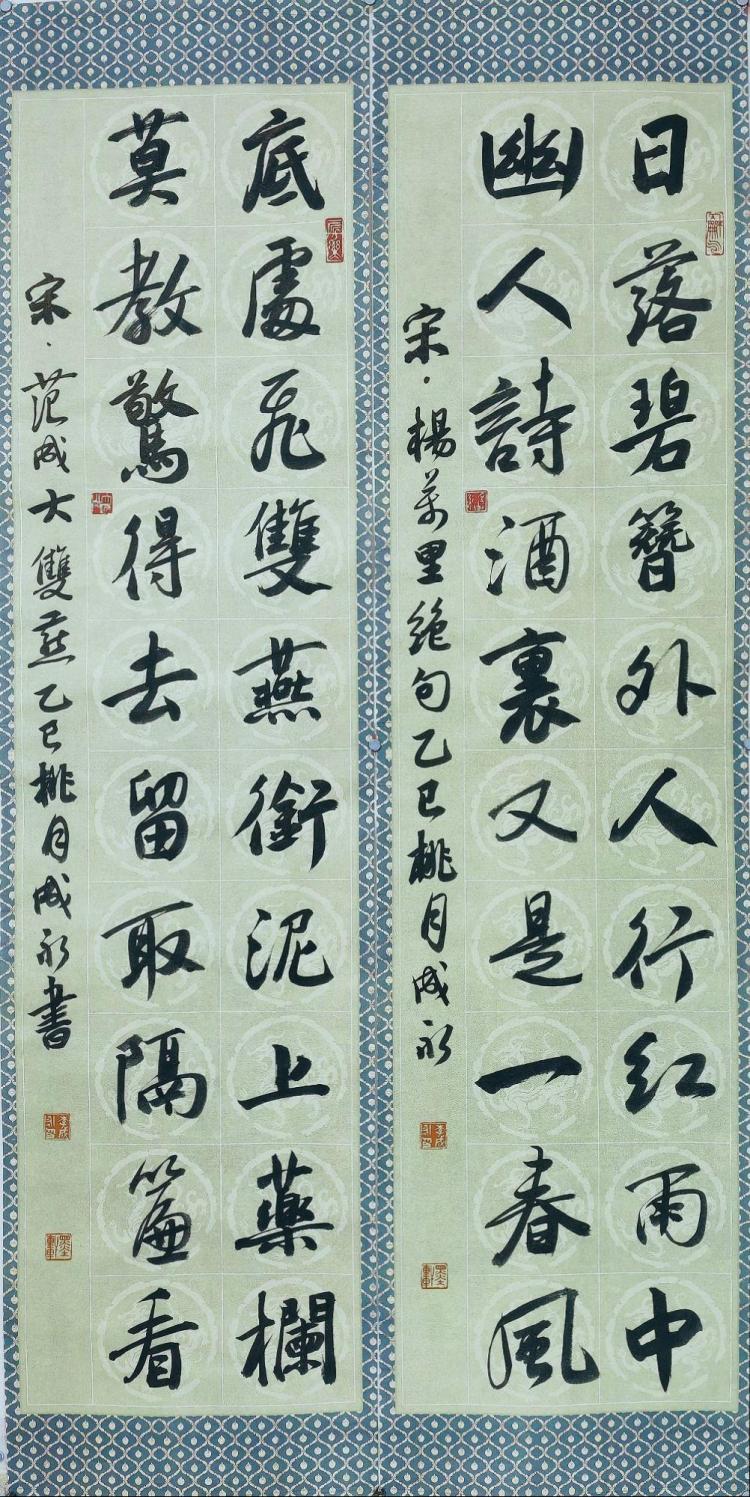 日落碧簪外人行红雨中
幽人詩酒裏又是一春風
宋·楊万里絶句乙巳桃月成永
底處飛雙燕銜泥上藥欄
莫教驚得去留取隔簾看
宋·范成大雙燕乙巳桃月成永書